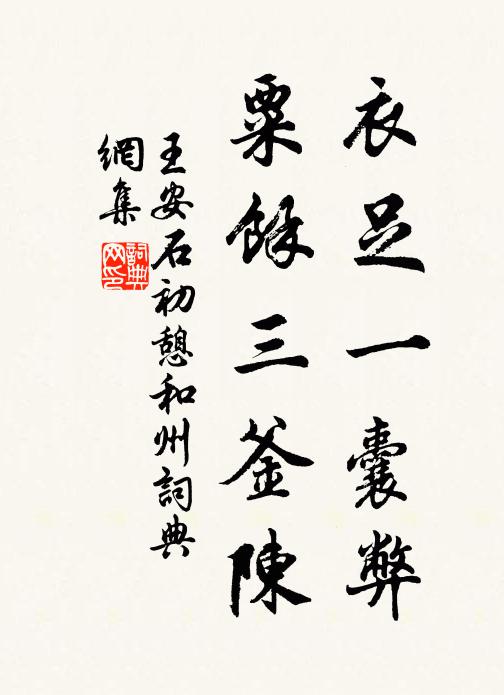 衣足一囊弊
粟餘三釜陳
王安石初憩和州詞典
網集
詞典网印